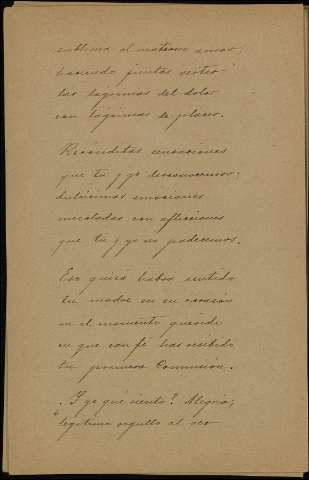 sublime el materno amor,
haciendo juntas verter
las lágrimas del dolor
con lágrimas de placer.
Recónditas sensaciones
que tu y yo desconocemos;
dulcísimas emociones
mezcladas con aflicciones
que tu y yo no padecemos.
Eso quizá habrá sentido
tu madre en su corazón
en el momento querido
en que con fé has recibido
tu primera Comunión.
¿Y yo qué siento? Alegría,
legítimo orgullo al ver